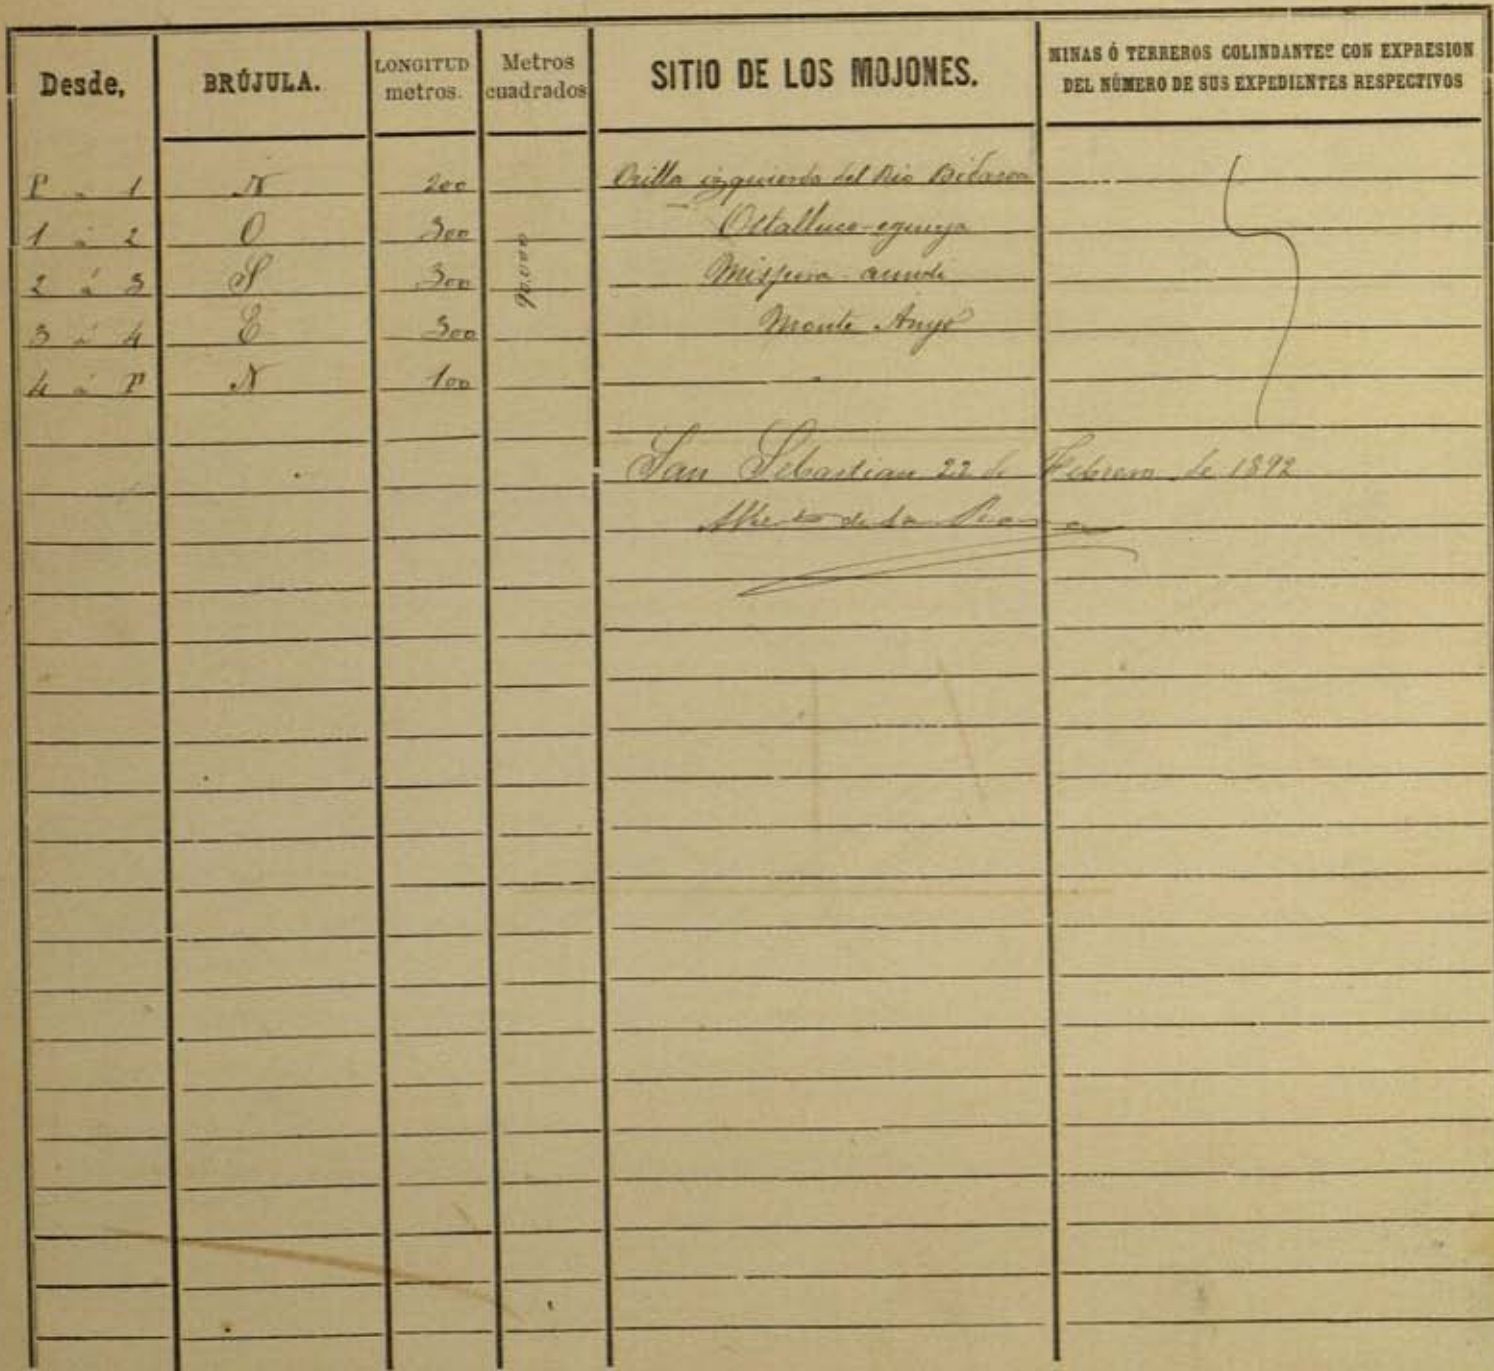 Desde, BRÚJULA. LONGITUD metros. Metros cuadrados SITIO DE LOS MOJONES. MINAS Ó TERREROS COLINDANTES CON EXPRESION DEL NÚMERO DE SUS EXPEDIENTES RESPECTIVOS
P á 1 N 200 Orilla izquierda del Rio Bidasoa
1 á 2 O 300
2 á 3 S 300 90.000
3 á 4 E 300 Monte
4 á P N 100
San Sebastian 22 de Febrero de 1892
de la